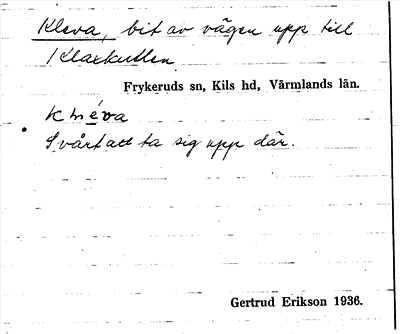 Kleva, bit av vägen upp till
Klaxkullen
Frykeruds sn, Kils hd, Värmlands län.
Svårt att ta sig upp där.
Gertrud Erikson 1936.